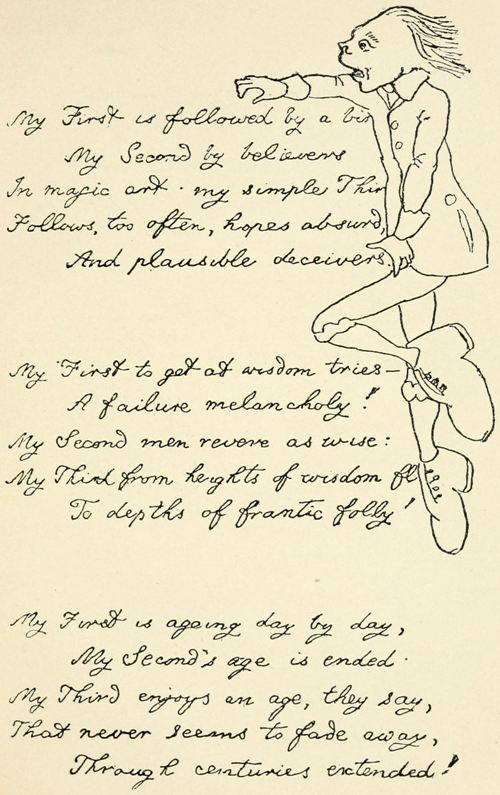 My First is followed by a bir
My Second by believers
In magic art: my simple Thir
Follows, too often, hopes absurd,
And plausible deceivers.
My First to get at wisdom tries—
A failure melancholy!
My Second men revere as wise:
My Third from heights of wisdom fl
To depths of frantic folly!
My First is ageing day by day,
My Second's age is ended.
My Third enjoys an age, they say,
That never seems to fade away,
Through centuries extended!